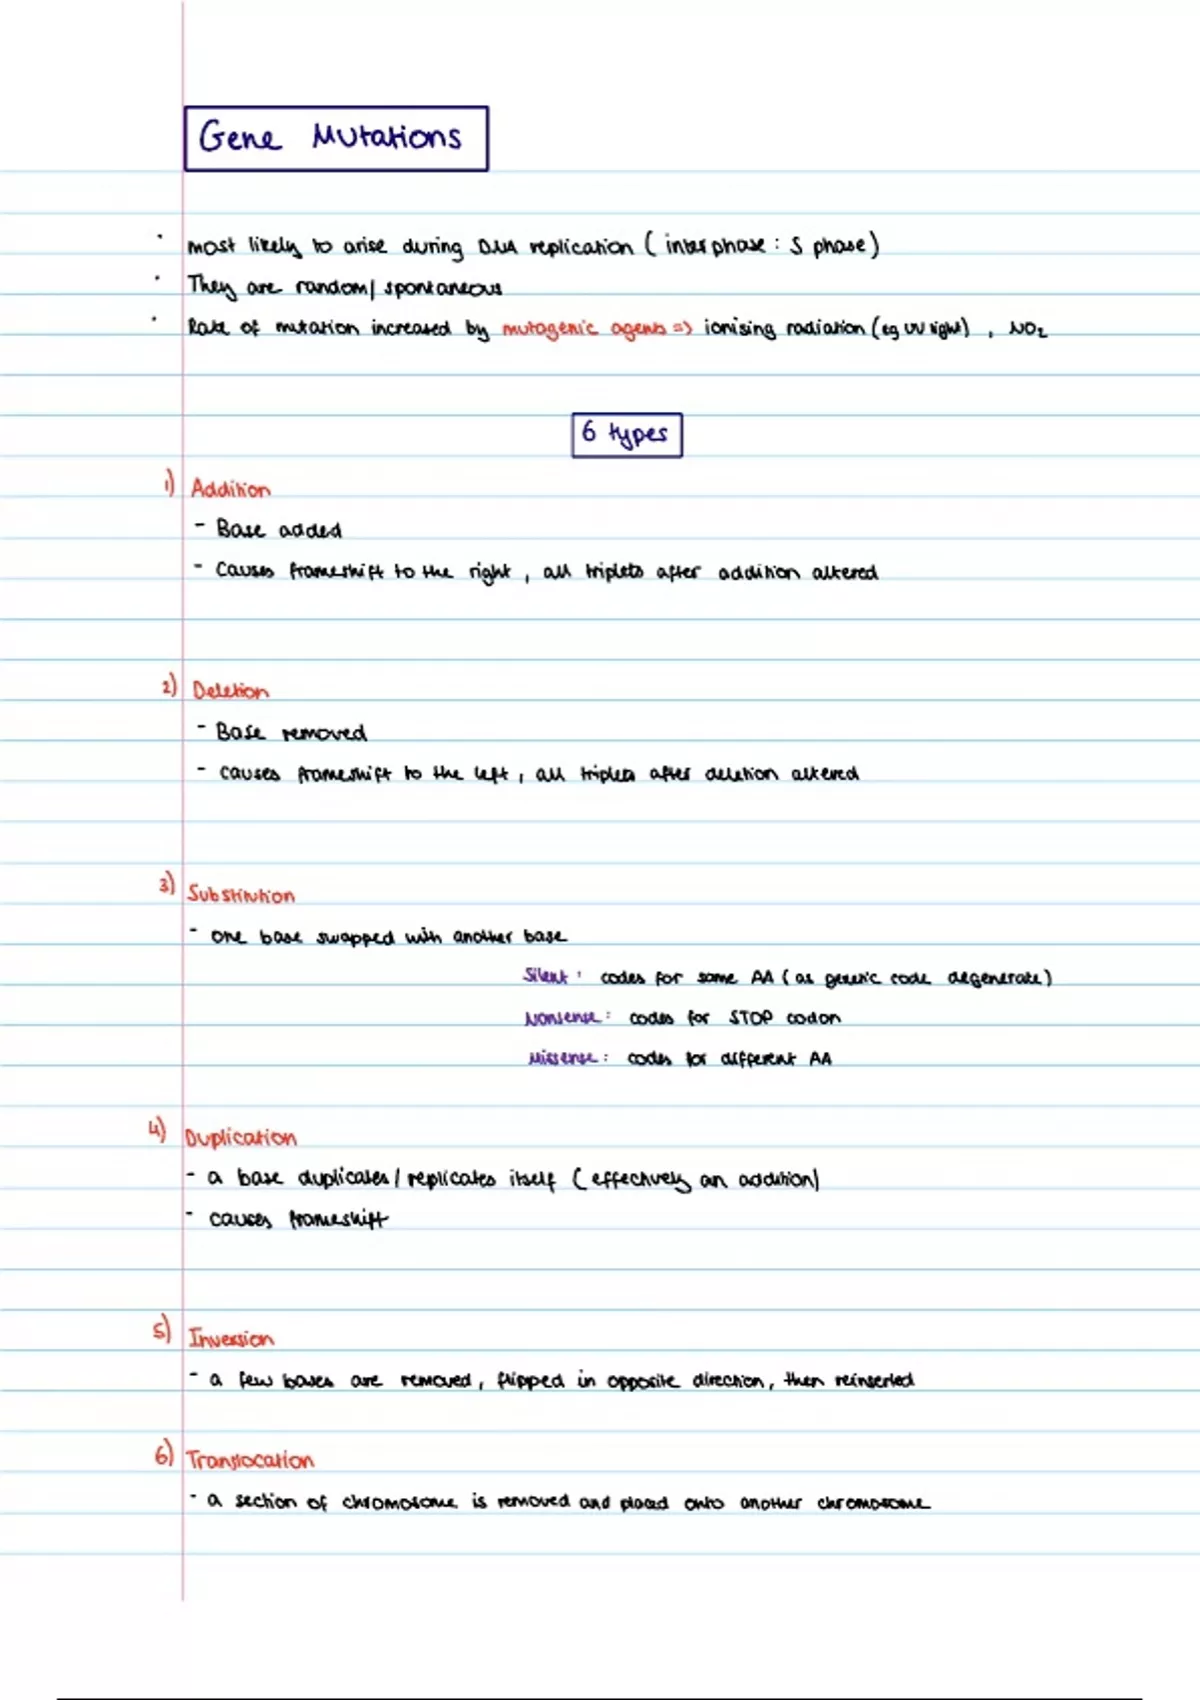 Gene Mutations
· most likely to arise during DNA replication ( interphase : S phase )
· They are random / spontaneous
· Rate of mutation increased by mutagenic agents => ionising radiation ( eg UV light ) , NO2
6 types
1) Addition
- Base added
- Causes frameshift to the right , all triplets after addition altered
2) Deletion
- Base removed
- causes frameshift to the left , all triplets after deletion altered
3) Substitution
- one base swapped with another base
Silent : codes for same AA ( as genetic code degenerate )
Nonsense : codes for STOP codon
Missense : codes for different AA
4) Duplication
- a base duplicates / replicates itself ( effectively an addition )
- causes frameshift
5) Inversion
- a few bases are removed , flipped in opposite direction , then reinserted
6) Translocation
- a section of chromosome is removed and placed onto another chromosome